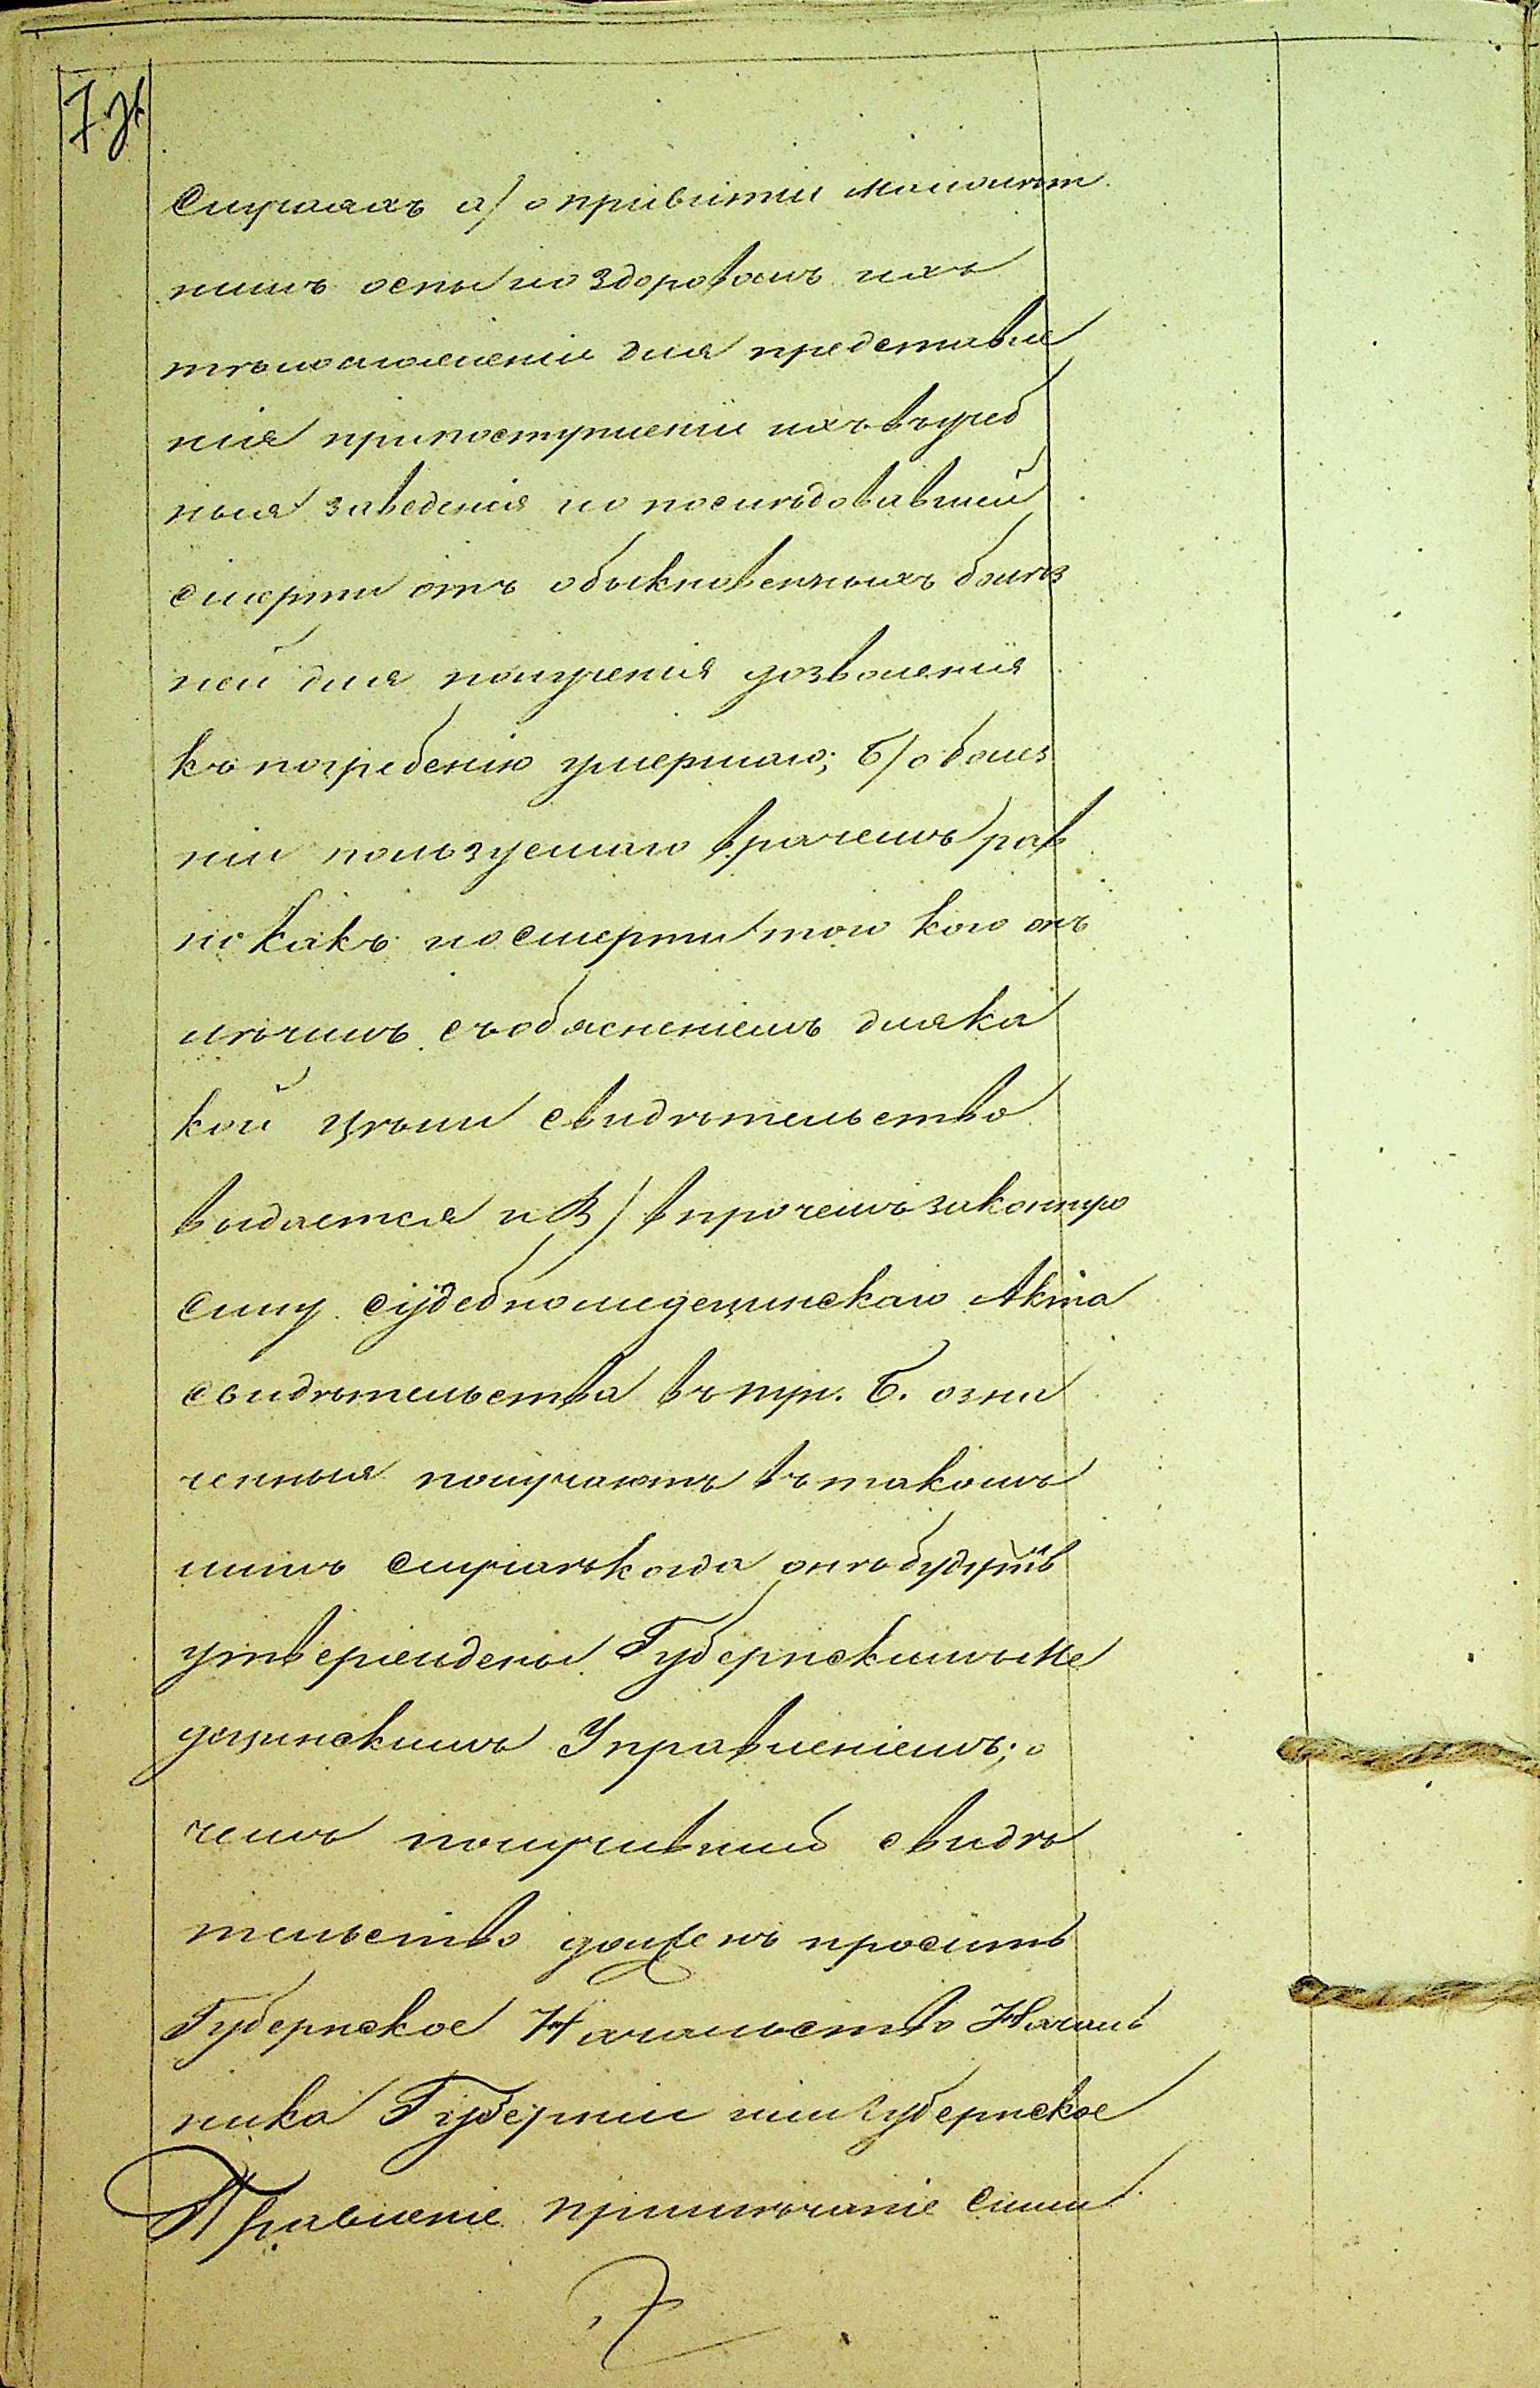 случаяхъ а/ о привитіи малолѣт
нимъ оспы и о здоровомъ ихъ
тѣлосложеніи для представле
нія при поступленіи ихъ въ учеб
ныя заведенія и о послѣдовавшей
смерти отъ обыкновенныхъ болѣз
ней для полученія дозволенія
къ погребенію умершаго; Б/ о болез
ни пользуемаго врачемъ рав
но какъ и о смерти того кого онъ
лѣчилъ съ объясненіемъ для ка
кой цѣли свидѣтельство
выдается и В/ въ прочемъ законную
силу судебномедецинскаго Акта
свидѣтельства въ пун. Б. озна
ченныя получаютъ въ такомъ
лишь случаѣ когда онѣ будутъ
утверждены Губернскимъ Ме
децинскимъ Управленіемъ; о
чемъ получившій свидѣ
тельство долженъ просить
Губернское Начальство Началь
ника Губерніи или Губернское
Правленіе примѣчаніе Если